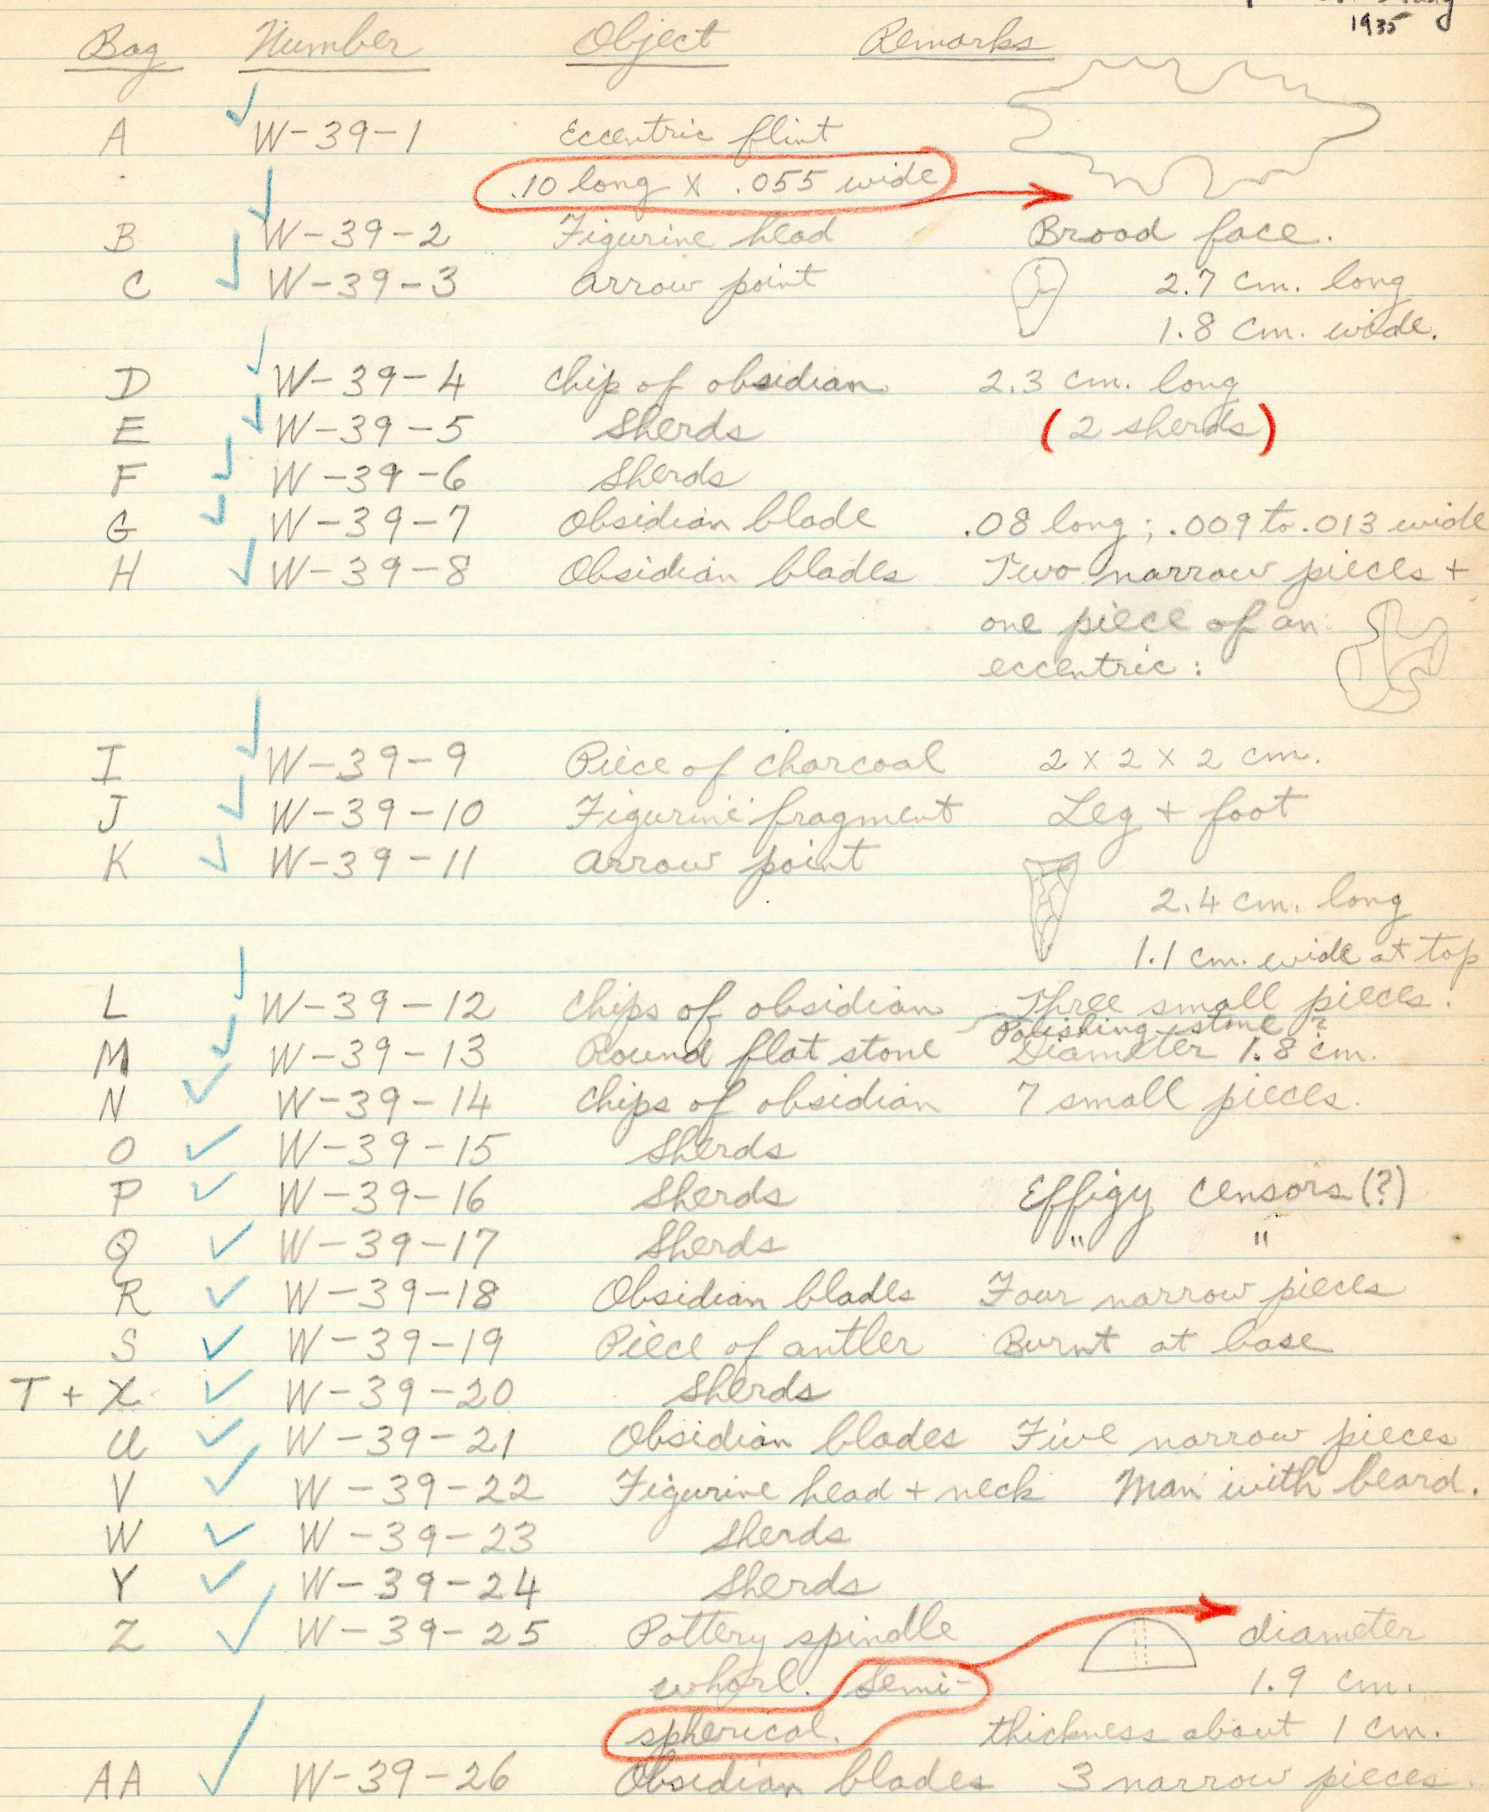 1935
Bag Number Object Remarks
A W-39-1 Eccentric flint
.10 long x .055 wide
B W-39-2 Figurine head Broad face.
C W-39-3 Arrow point 2.7 cm. long
1.8 cm. wide.
D W-39-4 Chip of obsidian 2.3 cm. long
E W-39-5 Sherds (2 sherds)
F W-39-6 Sherds
G W-39-7 Obsidian blade .08 long; .009 to .013 wide
H W-39-8 Obsidian blades Two narrow pieces +
one piece of an
eccentric:
I W-39-9 Piece of charcoal 2 x 2 x 2 cm.
J W-39-10 Figurine fragment Leg + foot
K W-39-11 Arrow point
2.4 cm. long
1.1 cm. wide at top
L W-39-12 Chips of obsidian Three small pieces.
Polishing stone?
M W-39-13 Round flat stone Diameter 1.8 cm.
N W-39-14 Chips of obsidian 7 small pieces.
O W-39-15 Sherds
P W-39-16 Sherds Effigy censors (?)
Q W-39-17 Sherds " "
R W-39-18 Obsidian blades Four narrow pieces
S W-39-19 Piece of antler Burnt at base
T + X W-39-20 Sherds
U W-39-21 Obsidian blades Five narrow pieces
V W-39-22 Figurine head + neck Man with beard.
W W-39-23 Sherds
Y W-39-24 Sherds
Z W-39-25 Pottery spindle diameter
whorl. Semi- 1.9 cm.
spherical. thickness about 1 cm.
AA W-39-26 Obsidian blades 3 narrow pieces.